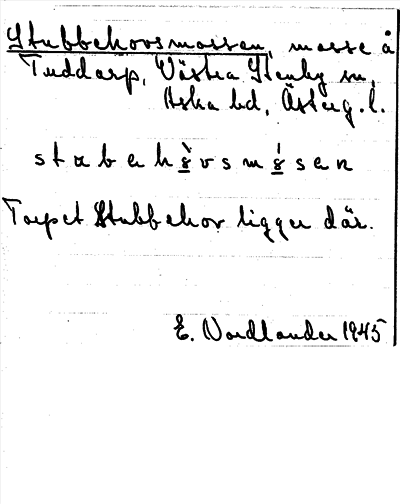 Stubbehovsmossen, mosse å
Tuddarp, Västra Stenby sn,
Aska hd, Österg. l.
s t u b e h ò̲ v s m ó̲ s e n
Torpet Stubbehov ligger där.
E. Nordlander 1945